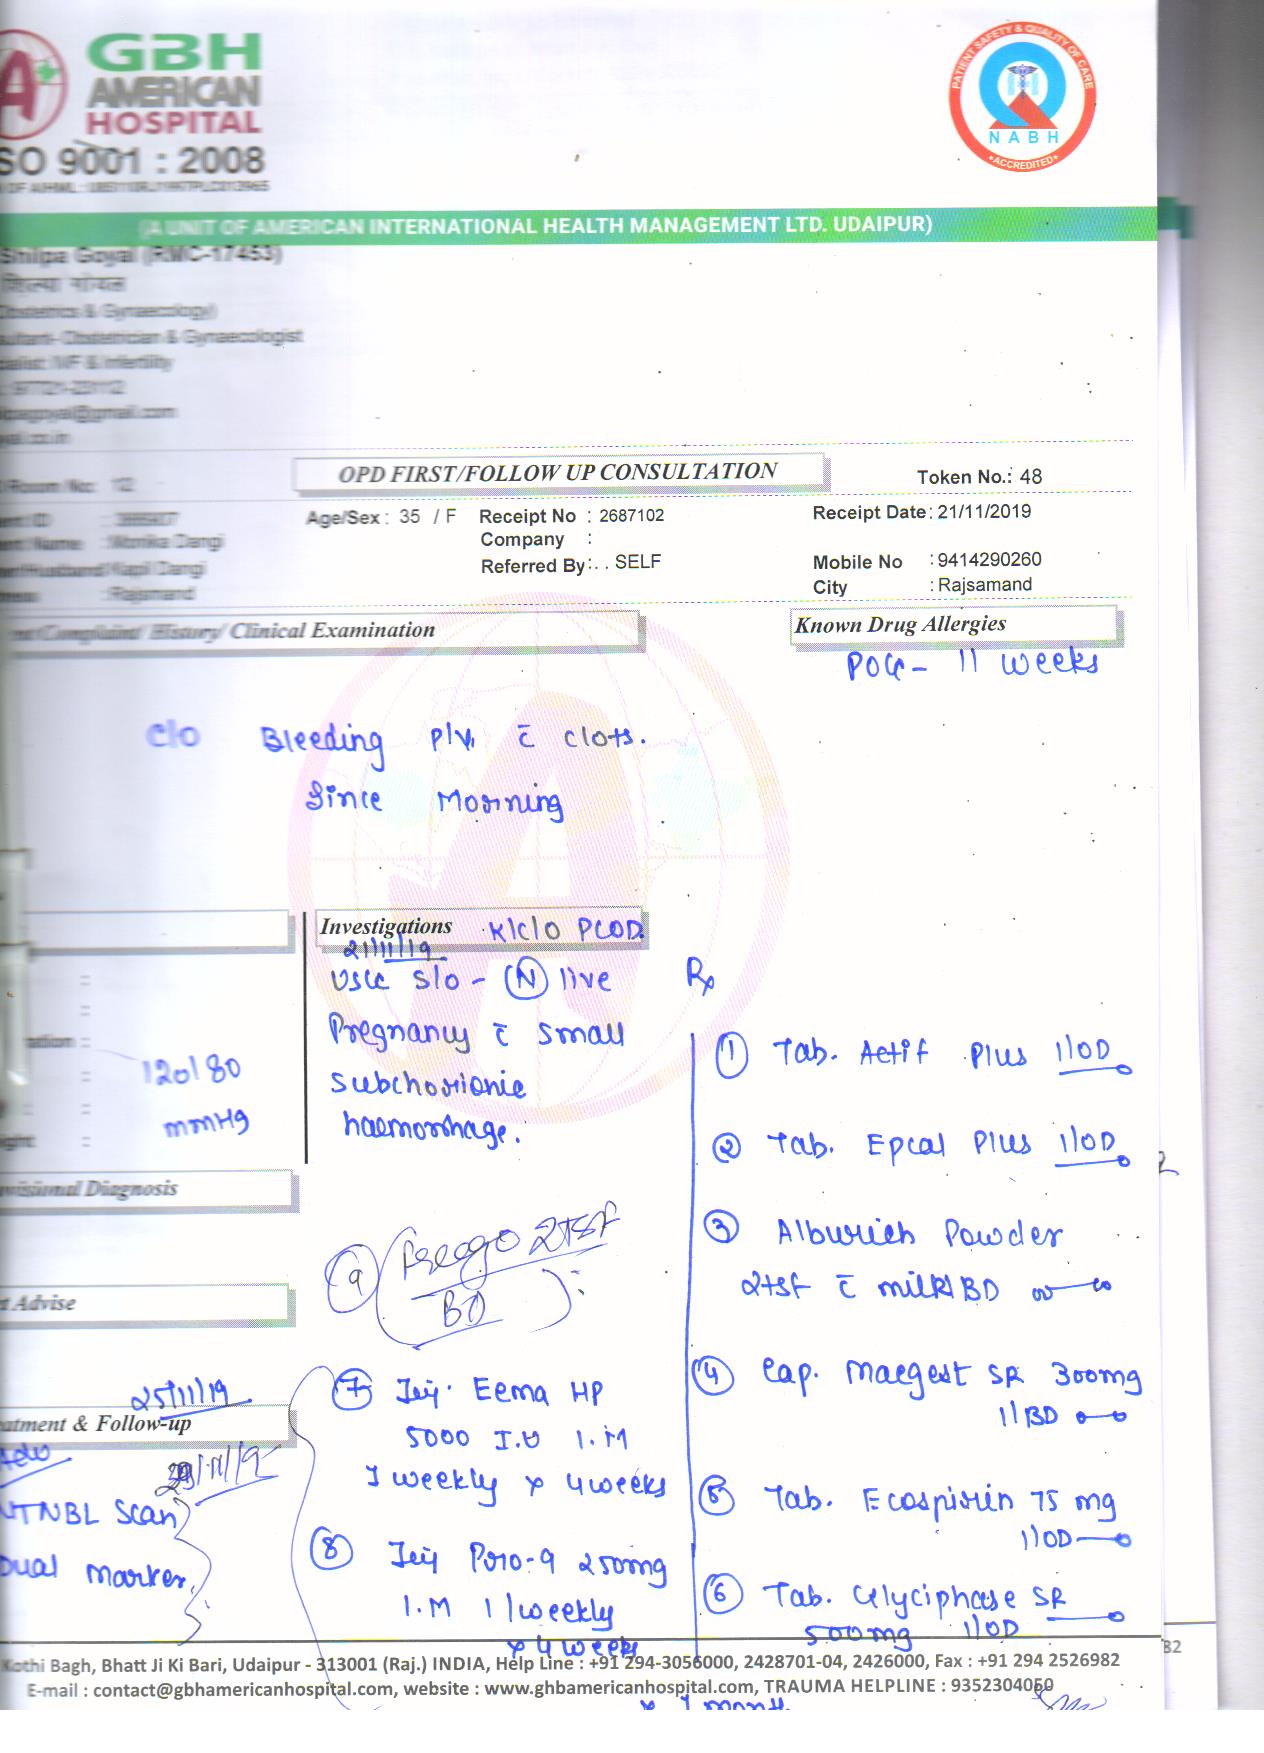 GBH
AMERICAN
HOSPITAL
SO 9001 : 2008
PATIENT SAFETY & QUALITY OF CARE
NABH
ACCREDITED
(A UNIT OF AMERICAN INTERNATIONAL HEALTH MANAGEMENT LTD. UDAIPUR)
Shilpa Goyal (RMC-17453)
Obstetrics & Gynaecology)
Obstetrician & Gynaecologist
IVF & Infertility
OPD FIRST/FOLLOW UP CONSULTATION
Token No.: 48
Age/Sex : 35 / F Receipt No : 2687102 Receipt Date: 21/11/2019
Company :
Monika Dangi
Referred By: . . SELF Mobile No : 9414290260
Kapil Dangi
City : Rajsamand
: Rajsamand
Complaint/ History/ Clinical Examination
Known Drug Allergies
POG - 11 weeks
C/o Bleeding P/V. c̄ clots.
Since Morning
Investigations K/C/O PCOD.
21/11/19
USG S/o - (N) live
Pregnancy c̄ small
subchorionic
haemorrhage.
120/80
mmHg
Provisional Diagnosis
Advise
25/11/19
Treatment & Follow-up
Adv
NTNBL Scan
Dual Marker.
Rx
① Tab. Actif Plus 1/OD
② Tab. Epcal Plus 1/OD
③ Alburich Powder
2tsf c̄ milk/BD
④ Cap. Macgest SR 300mg
1/BD
⑤ Tab. Ecospirin 75 mg
1/OD
⑥ Tab. Glyciphase SR
500mg 1/OD
⑨ 2tsf
BD
⑦ Inj. Eema HP
5000 I.U I.M
1 weekly x 4 weeks
⑧ Inj Pro-9 250mg
I.M 1/weekly
x 4 weeks
Kothi Bagh, Bhatt Ji Ki Bari, Udaipur - 313001 (Raj.) INDIA, Help Line : +91 294-3056000, 2428701-04, 2426000, Fax : +91 294 2526982
E-mail : contact@gbhamericanhospital.com, website : www.ghbamericanhospital.com, TRAUMA HELPLINE : 9352304050
x 1 month